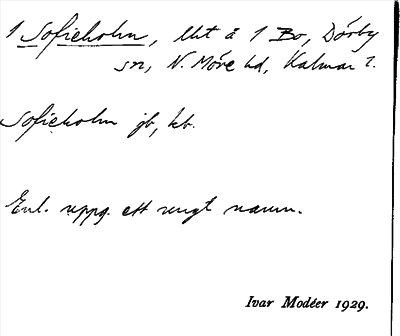 1 Sofieholm, lht å 1 Bo, Dörby
sn, N. Möre hd, Kalmar l.
Sofieholm jb, kb.
Enl. uppg. ett ungt namn.
Ivar Modéer 1929.